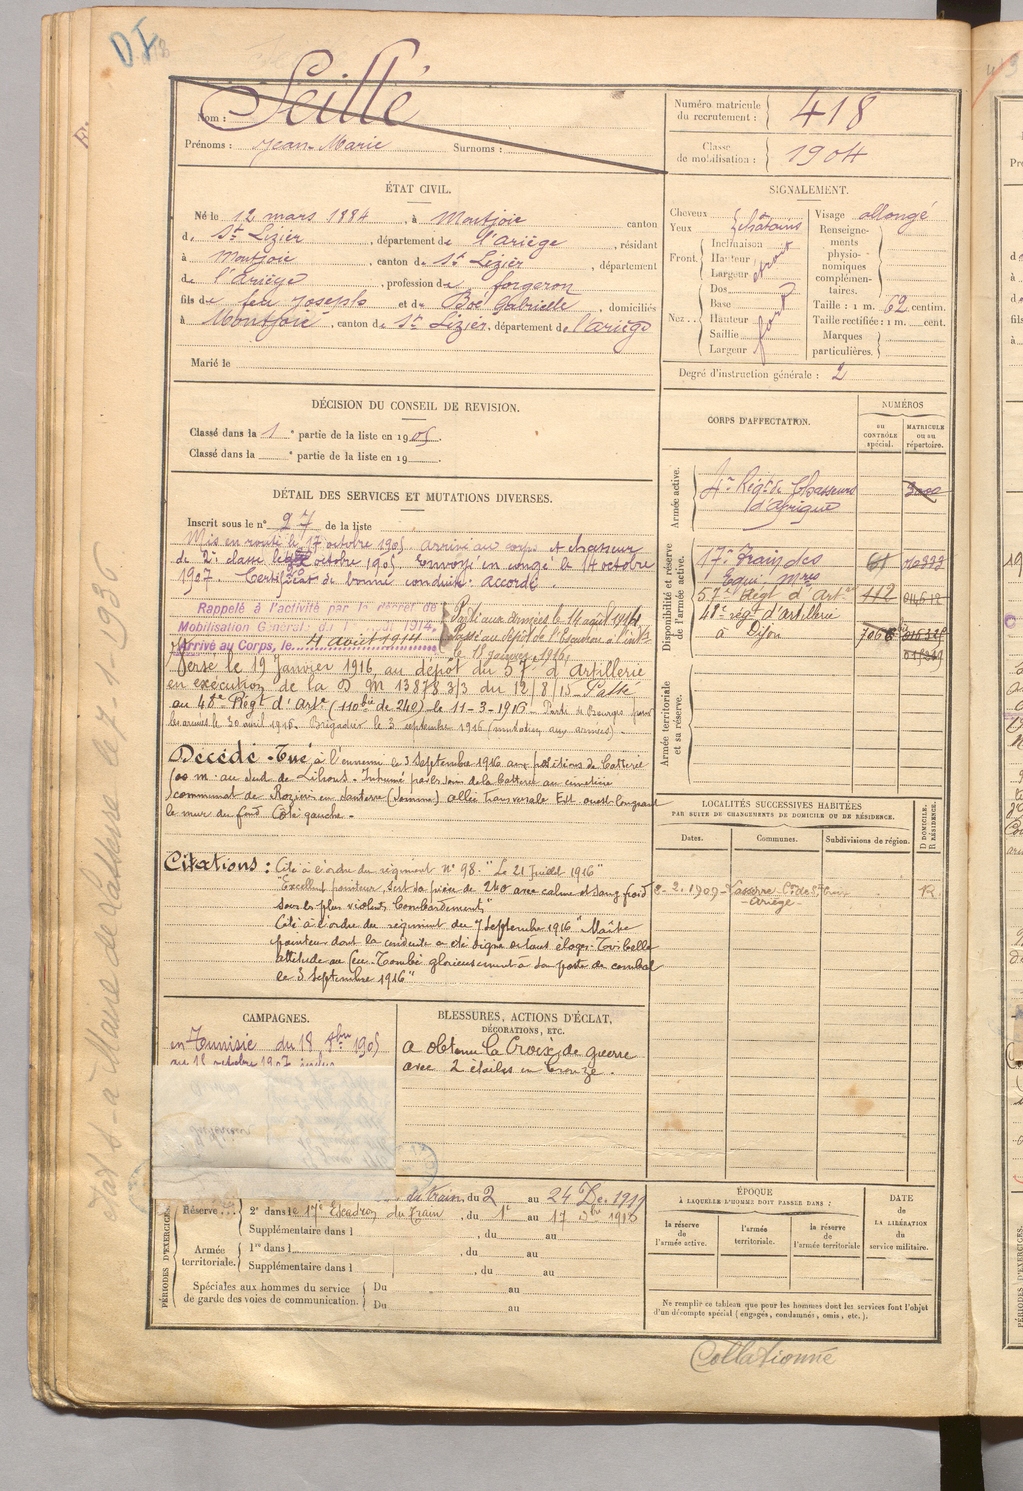 D.F.
Nom : Seillé
Prénoms : Jean-Marie Surnoms :
Numéro matricule du recrutement : 418
Classe de mobilisation : 1904
ÉTAT CIVIL.
Né le 12 mars 1884, à Montjoie canton
de St Lizier, département de l'Ariège, résidant
à Montjoie, canton de St Lizier, département
de l'Ariège, profession de forgeron
fils de feu Joseph et de Boé Gabrielle, domiciliés
à Montjoie, canton de St Lizier, département de l'Ariège
Marié le
SIGNALEMENT.
Cheveux châtains
Yeux
Front. Inclinaison
Hauteur
Largeur
Nez.. Dos
Base
Hauteur
Saillie
Largeur
Visage allongé
Renseignements physionomiques complémentaires.
Taille : 1 m. 62 centim.
Taille rectifiée : 1 m. cent.
Marques particulières.
Degré d'instruction générale : 2
DÉCISION DU CONSEIL DE REVISION.
Classé dans la 1e partie de la liste en 1905.
Classé dans la e partie de la liste en 19
DÉTAIL DES SERVICES ET MUTATIONS DIVERSES.
Inscrit sous le n° 27 de la liste
Mis en route le 17 octobre 1905 arrivé au corps et chasseur
de 2e classe le octobre 1905. Envoyé en congé le 14 octobre
1907. Certificat de bonne conduite accordé.
Rappelé à l'activité par le décret de
Mobilisation Générale du 1er août 1914,
Arrivé au Corps, le 4 août 1914
Parti aux armées le 14 août 1914
passé au dépôt de l'Escadron à l'intr
le 18 janvier 1916,
Versé le 19 Janvier 1916 au dépôt du 57e d'Artillerie
en exécution de la D M 13878 3/3 du 12/8/15 - Passé
au 48e Régt d'Arte (110bie de 240) le 11-3-1916 - Parti de Bourges pour
les armées le 30 avril 1916. Brigadier le 3 septembre 1916 (mutation aux armées).
Décédé - Tué à l'ennemi le 3 Septembre 1916 aux positions de batterie
m. au Sud de Lihons. Inhumé par les soins de la batterie au cimetière
communal de Rozières en Santerre (Somme) allée transversale Est ouest longeant
le mur du fond Côté gauche.-
Citations : Cité à l'ordre du régiment n° 98. "Le 21 Juillet 1916"
"Excellent pointeur, sert sa pièce de 240 avec calme et sang froid
sous les plus violents bombardements"
Cité à l'ordre du régiment du 7 Septembre 1916 "Maître
pointeur dont la conduite a été digne de tous éloges. Très belle
attitude au feu. Tombé glorieusement à son poste de combat
le 3 Septembre 1916"
CORPS D'AFFECTATION.
NUMÉROS
au CONTRÔLE spécial.
MATRICULE ou au répertoire.
Armée active.
4e Régt de Chasseurs
d'Afrique
Disponibilité et réserve de l'armée active.
17e Train des
Equi. mres
57e Régt d'Arter 112
48e régt d'artillerie
à Dijon
Armée territoriale et sa réserve.
LOCALITÉS SUCCESSIVES HABITÉES
PAR SUITE DE CHANGEMENTS DE DOMICILE OU DE RÉSIDENCE.
D DOMICILE. R RÉSIDENCE.
Dates. Communes. Subdivisions de région.
2. 1909 Lasserre Con de Ste Croix R
Ariège
CAMPAGNES.
en Tunisie du 18 8bre 1905
au 18 octobre 1907 inclus
BLESSURES, ACTIONS D'ÉCLAT,
DÉCORATIONS, ETC.
a obtenu la Croix de guerre
avec 2 étoiles en bronze.
PÉRIODES D'EXERCICES.
du train, du 2 au 24 Dc. 1911
Réserve... 2e dans le 17e Escadron du Train, du 1e au 17
Supplémentaire dans l , du au
Armée territoriale. 1re dans l , du au
Supplémentaire dans l , du au
Spéciales aux hommes du service de garde des voies de communication. Du au
Du au
ÉPOQUE
À LAQUELLE L'HOMME DOIT PASSER DANS :
la réserve de l'armée active.
l'armée territoriale.
la réserve de l'armée territoriale
DATE
de
LA LIBÉRATION
du
service militaire.
Ne remplir ce tableau que pour les hommes dont les services font l'objet
d'un décompte spécial (engagés, condamnés, omis, etc.).
Collationné
à Maire de Lasserre le 7-1-1936